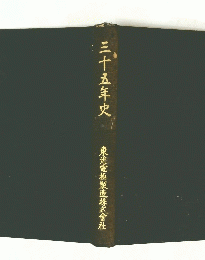 三十五年史
東光電機製造株式会社